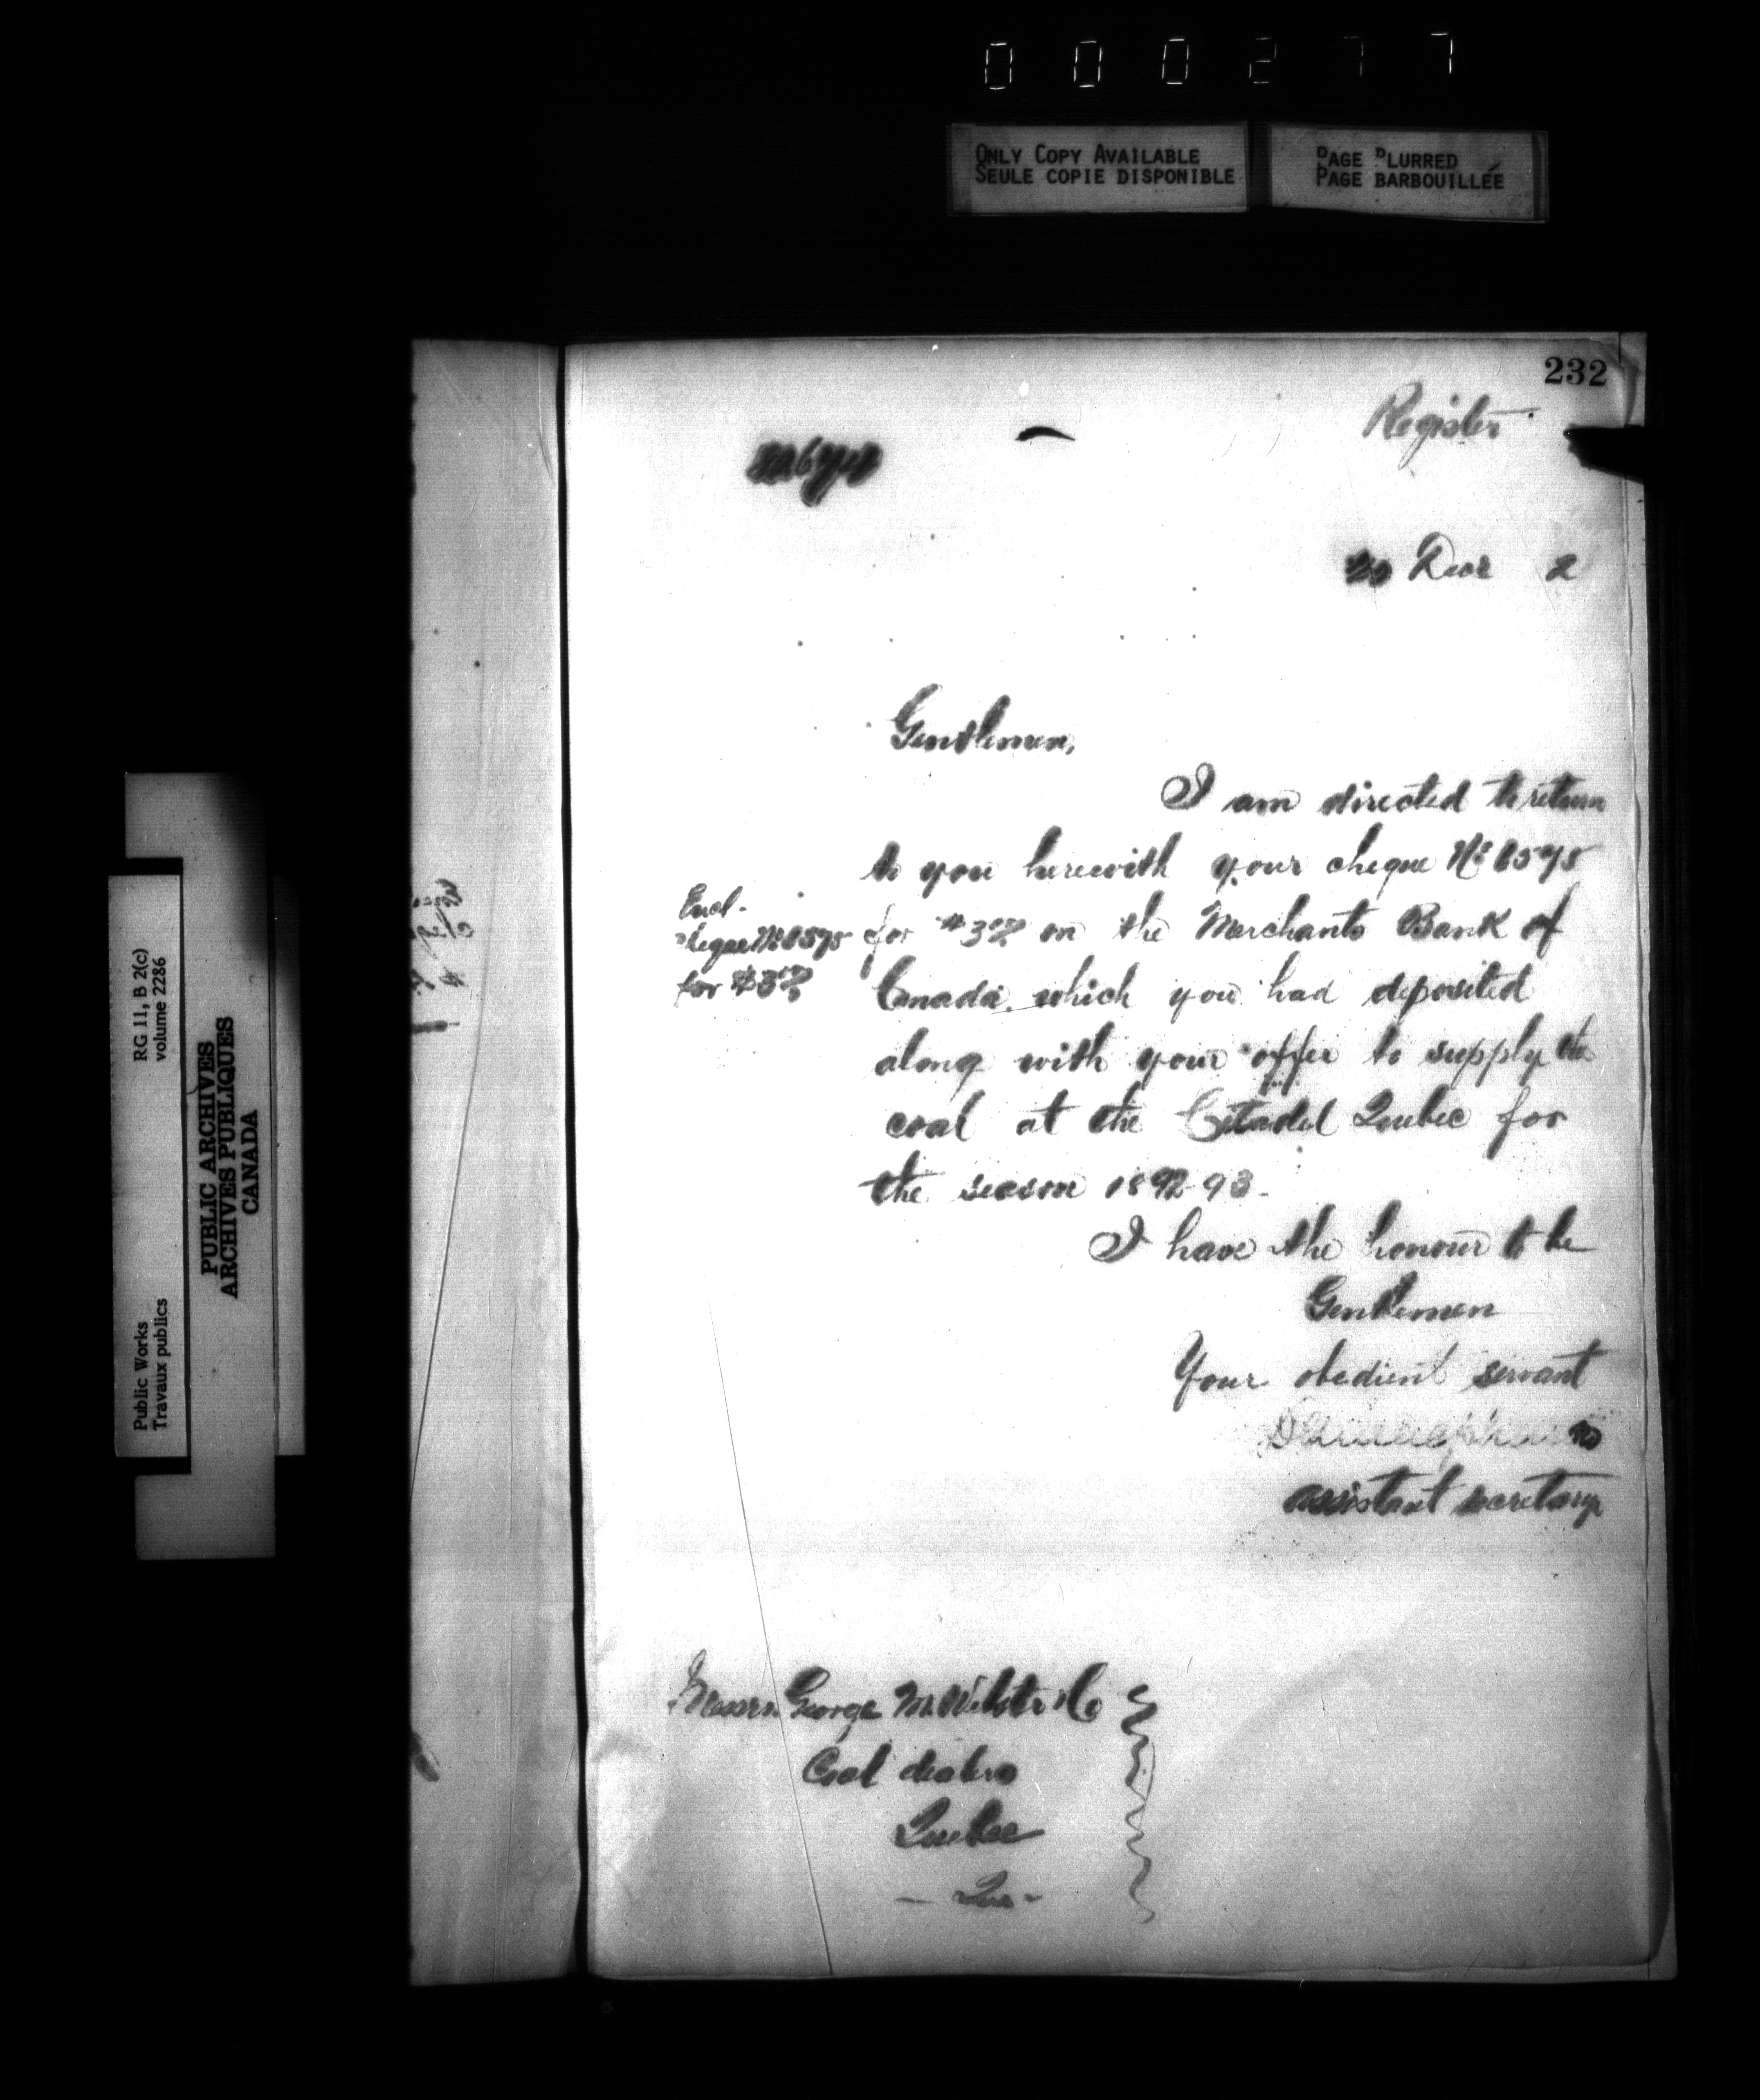 000277
ONLY COPY AVAILABLE
SEULE COPIE DISPONIBLE
PAGE BLURRED
PAGE BARBOUILLÉE
232
Register
20 Decr 2
Gentlemen,
I am directed to return
to you herewith your cheque No 8595
Encl.
cheque No 8595
for $3
for $3 on the Merchants Bank of
Canada which you had deposited
along with your offer to supply the
coal at the Citadel Quebec for
the season 1892-93-
I have the honour to be
Gentlemen
Your obedient servant
assistant secretary
Messrs. George M. Webster & Co
Coal dealers
Quebec
- Que -
Public Works
Travaux publics
RG 11, B 2(c)
volume 2286
PUBLIC ARCHIVES
ARCHIVES PUBLIQUES
CANADA